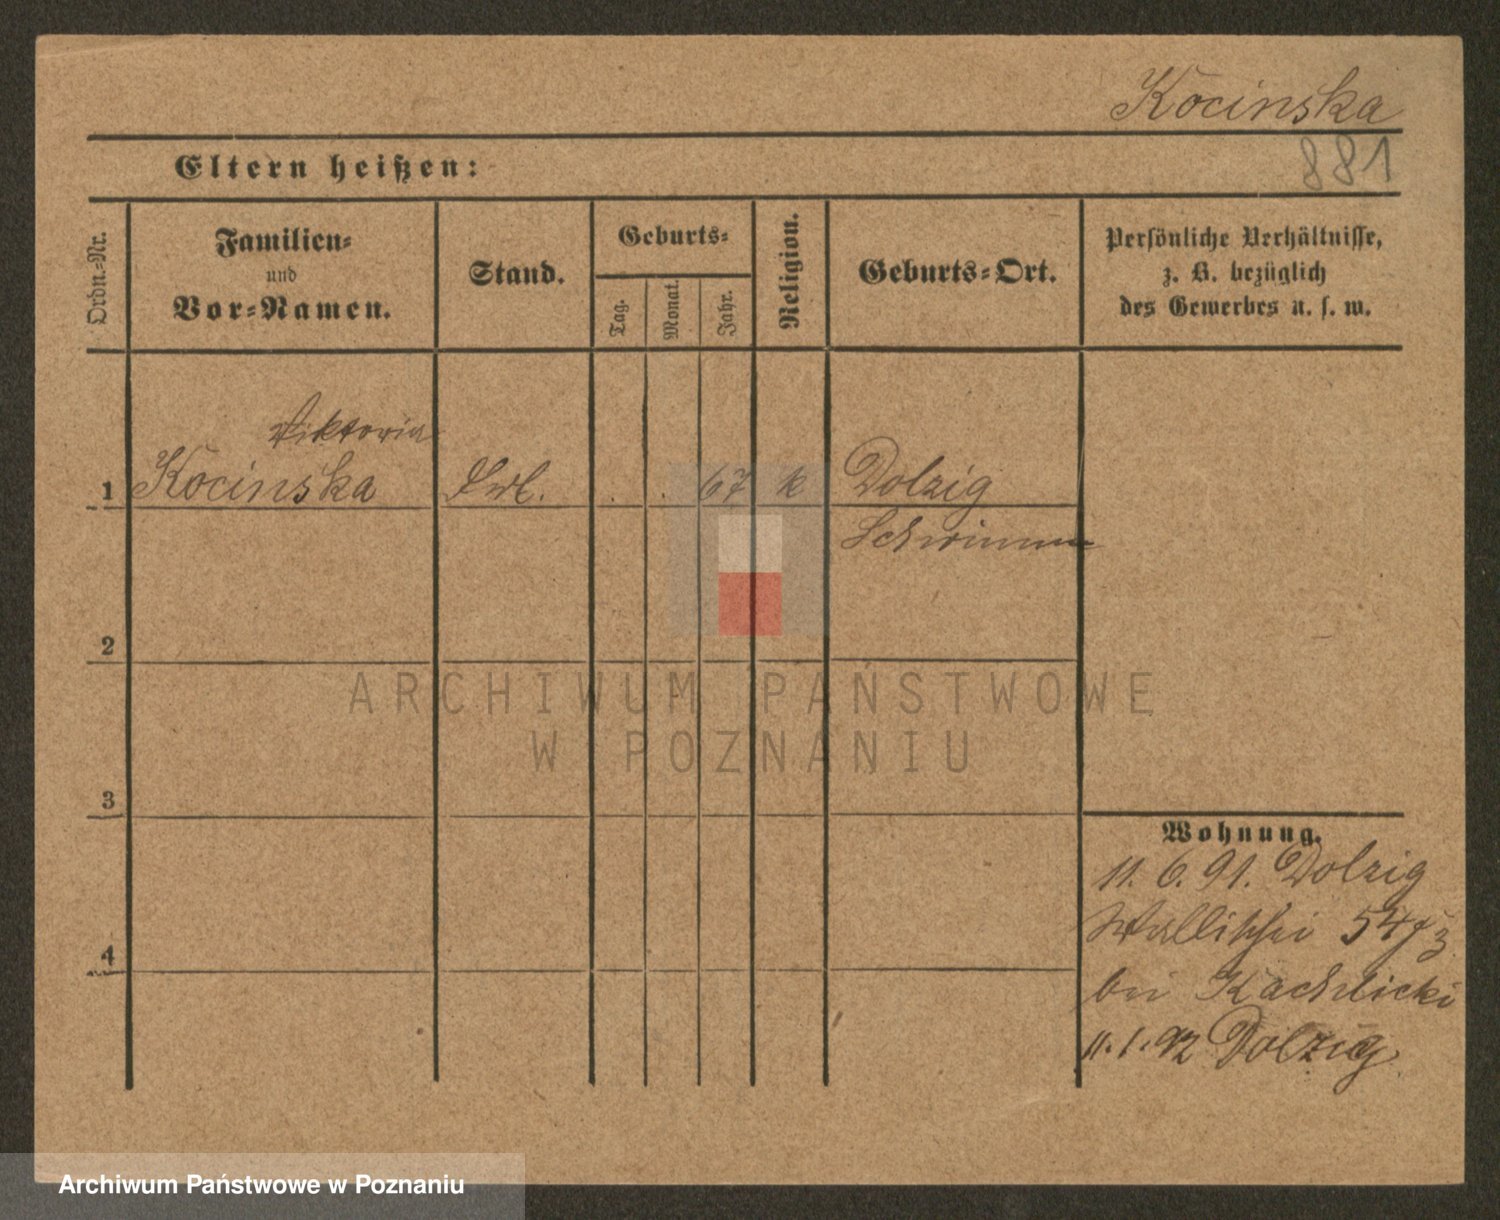 Kocinska
Eltern heißen:
881
Ordn.-Nr.
Familien-
und
Vor-Namen.
Stand.
Geburts-
Tag.
Monat.
Jahr.
Religion.
Geburts-Ort.
Persönliche Verhältnisse,
z. B. bezüglich
des Gewerbes u. s. w.
Viktoria
1 Kocinska . . 67 k Dolzig
Schrimm
2
ARCHIWUM PAŃSTWOWE
W POZNANIU
3
Wohnung.
11. 6. 91. Dolzig
Wallischei 54/3
bei Kachlicki
4
11. 1. 92 Dolzig
Archiwum Państwowe w Poznaniu